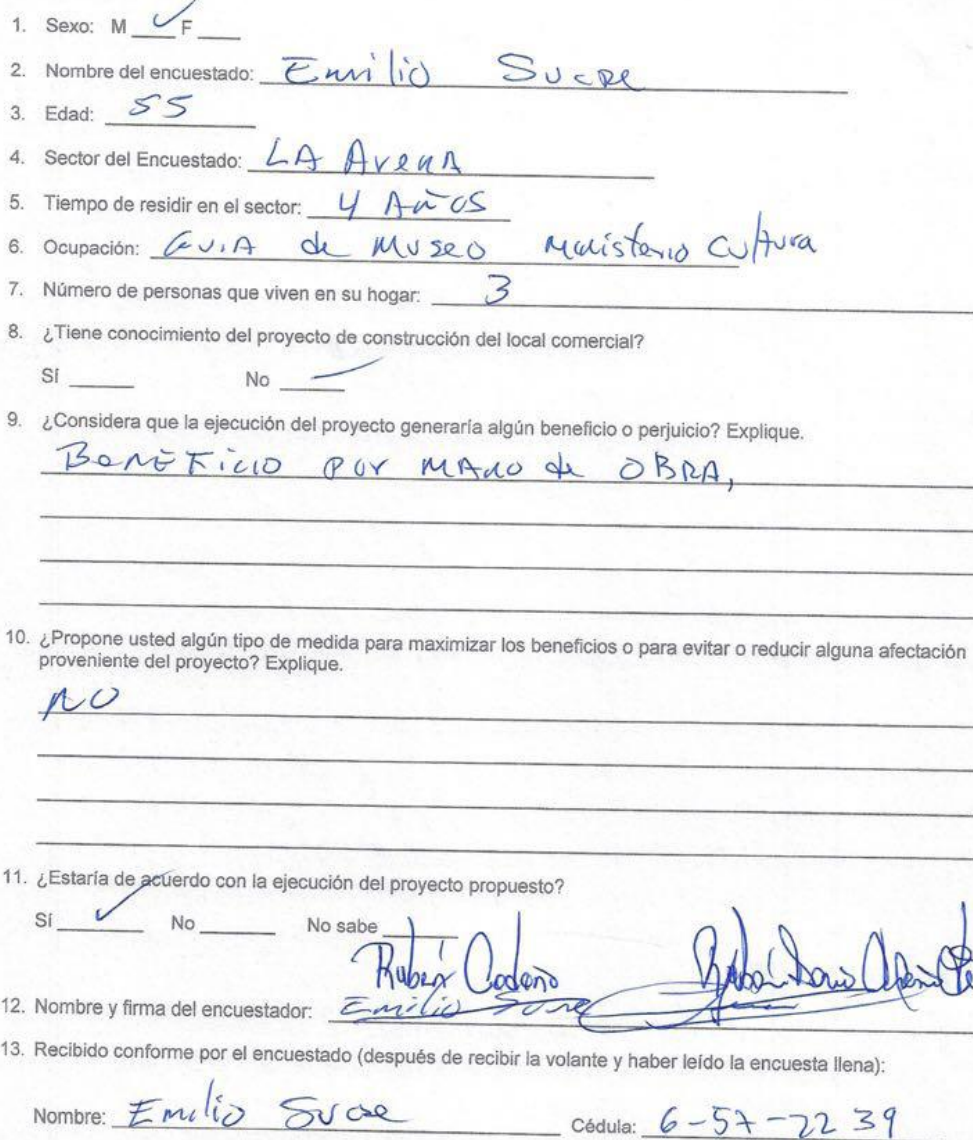 1. Sexo: M ✓ F ____
2. Nombre del encuestado: Emilio Sucre
3. Edad: 55
4. Sector del Encuestado: LA ArenA
5. Tiempo de residir en el sector: 4 Años
6. Ocupación: GuiA de Museo Ministerio Cultura
7. Número de personas que viven en su hogar: 3
8. ¿Tiene conocimiento del proyecto de construcción del local comercial?
Sí ____ No ✓
9. ¿Considera que la ejecución del proyecto generaría algún beneficio o perjuicio? Explique.
BENEFicio por MANO de OBRA,
10. ¿Propone usted algún tipo de medida para maximizar los beneficios o para evitar o reducir alguna afectación
proveniente del proyecto? Explique.
NO
11. ¿Estaría de acuerdo con la ejecución del proyecto propuesto?
Sí ✓ No ____ No sabe ____
Rubén Cedeño
12. Nombre y firma del encuestador: Emilio Sucre
13. Recibido conforme por el encuestado (después de recibir la volante y haber leído la encuesta llena):
Nombre: Emilio Sucre Cédula: 6-57-2239